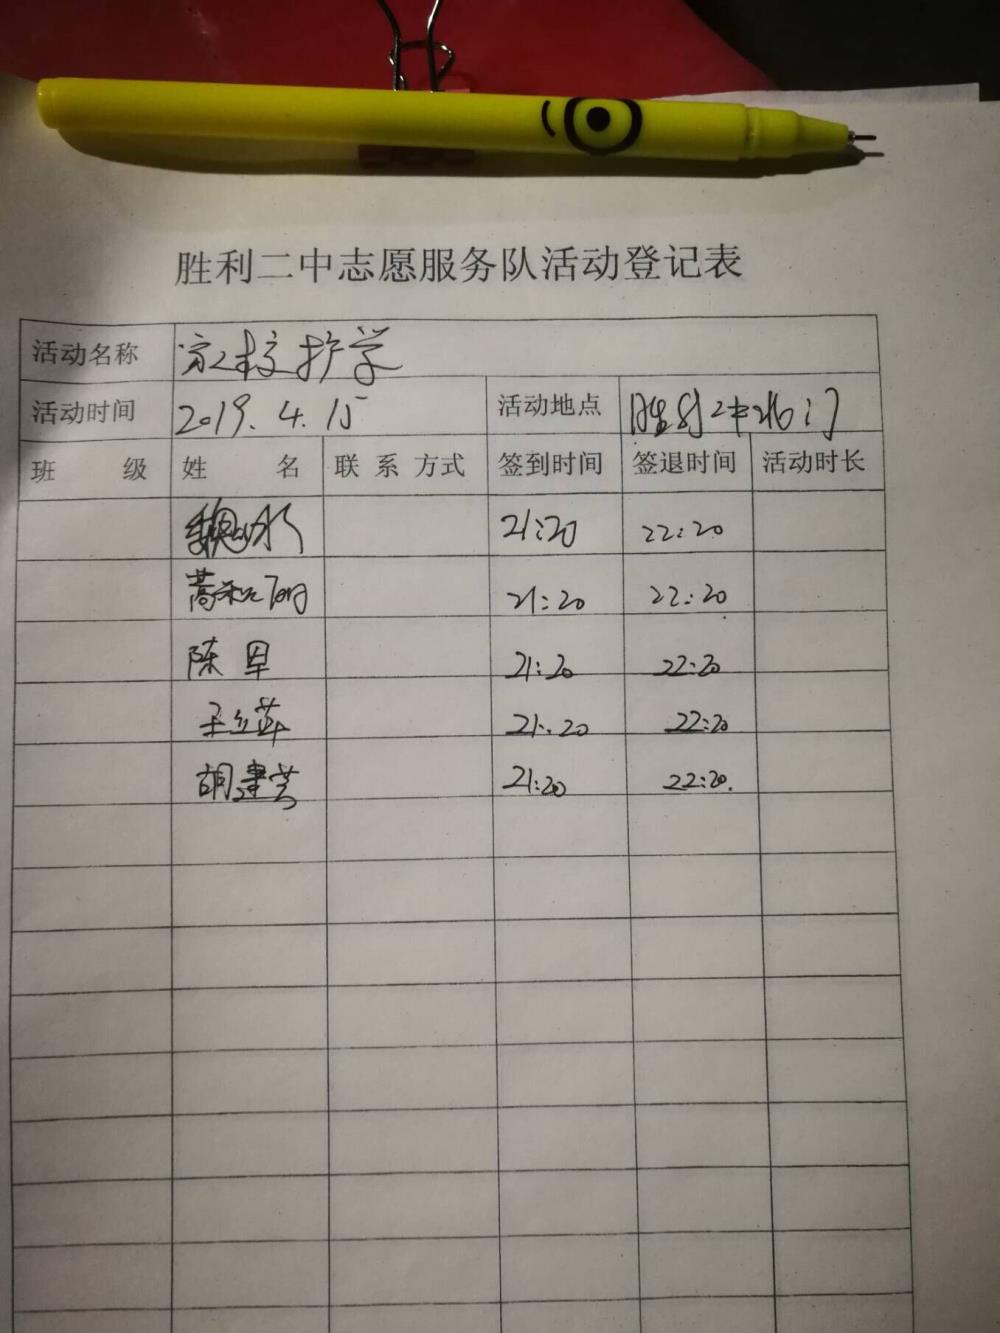 胜利二中志愿服务队活动登记表
活动名称 家校护学
活动时间 2019.4.15 活动地点 胜利二中北门
班 级 姓 名 联系方式 签到时间 签退时间 活动时长
21:20 22:20
21:20 22:20
陈 21:20 22:20
王立萍 21:20 22:20
胡建芸 21:20 22:20.